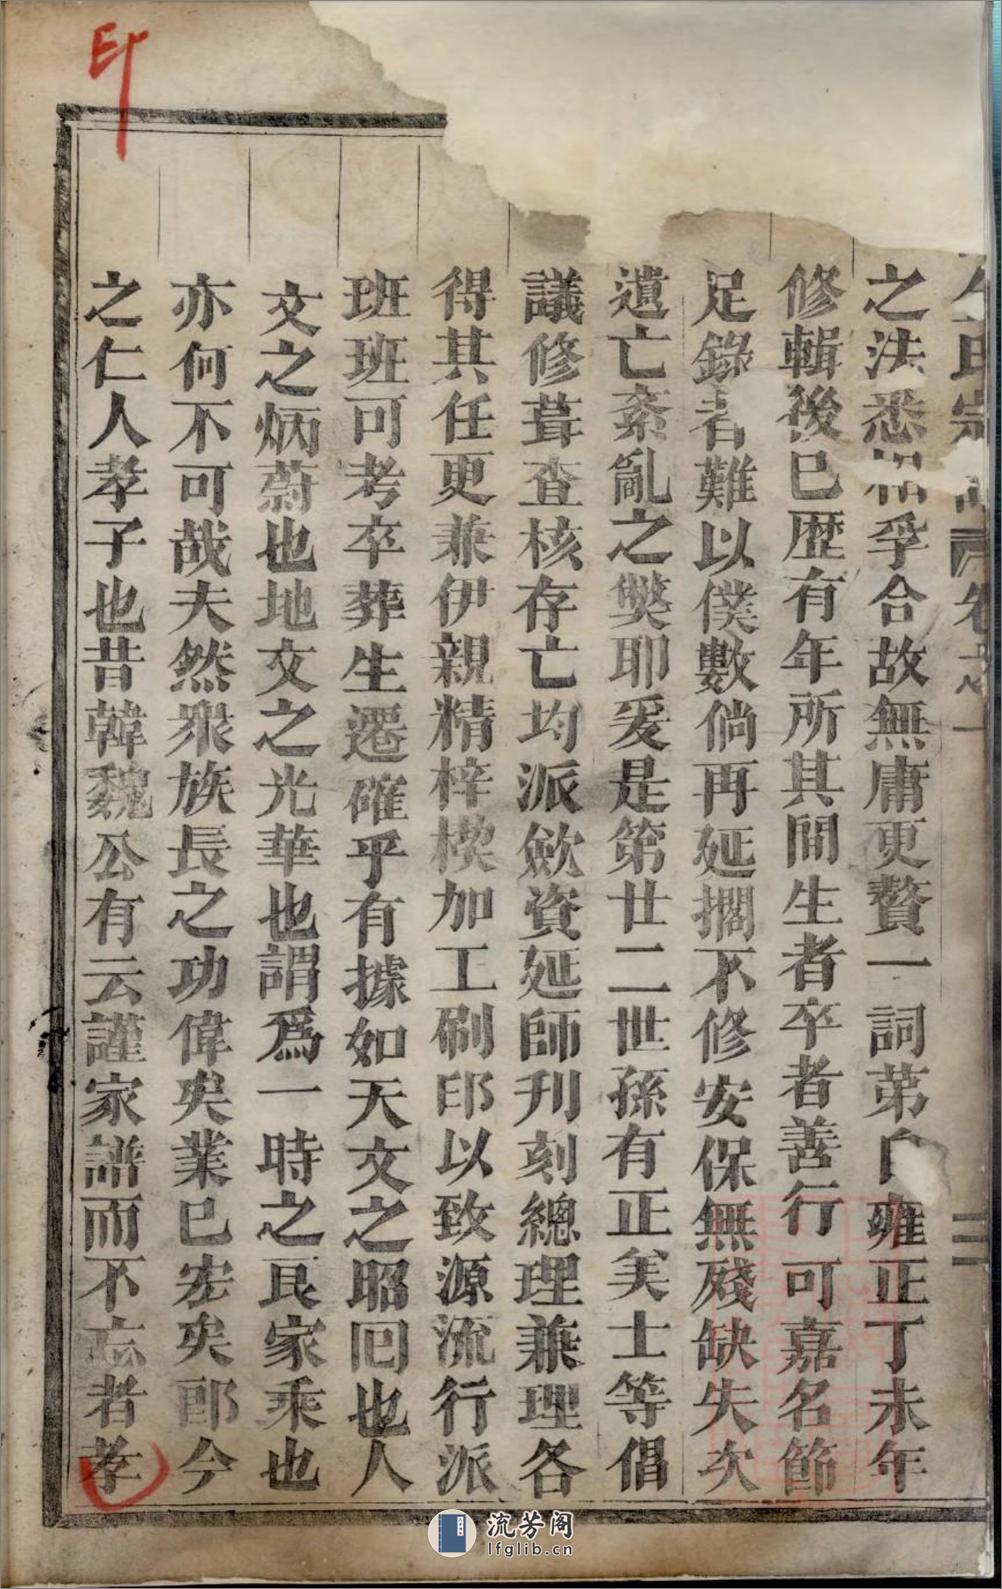 氏宗譜 卷之一 三
之法悉相孚合故無庸更贅一詞第自雍正丁未年
修輯後已歴有年所其間生者卒者善行可嘉名節
足錄者難以僕數倘再延擱不修安保無殘缺失次
遺亡紊亂之獘耶爰是第廿二世孫有正美士等倡
議修葺查核存亡均派歛資延師刋刻總理兼理各
得其任更兼伊親精梓楔加工刷印以致源流行派
班班可考卒葬生遷確乎有據如天文之昭囘也人
文之炳蔚也地文之光華也謂爲一時之良家乘也
亦何不可哉夫然眾族長之功偉矣業已宏矣即今
之仁人孝子也昔韓魏公有云謹家譜而不忘者孝
印
流芳阁
lfglib.cn